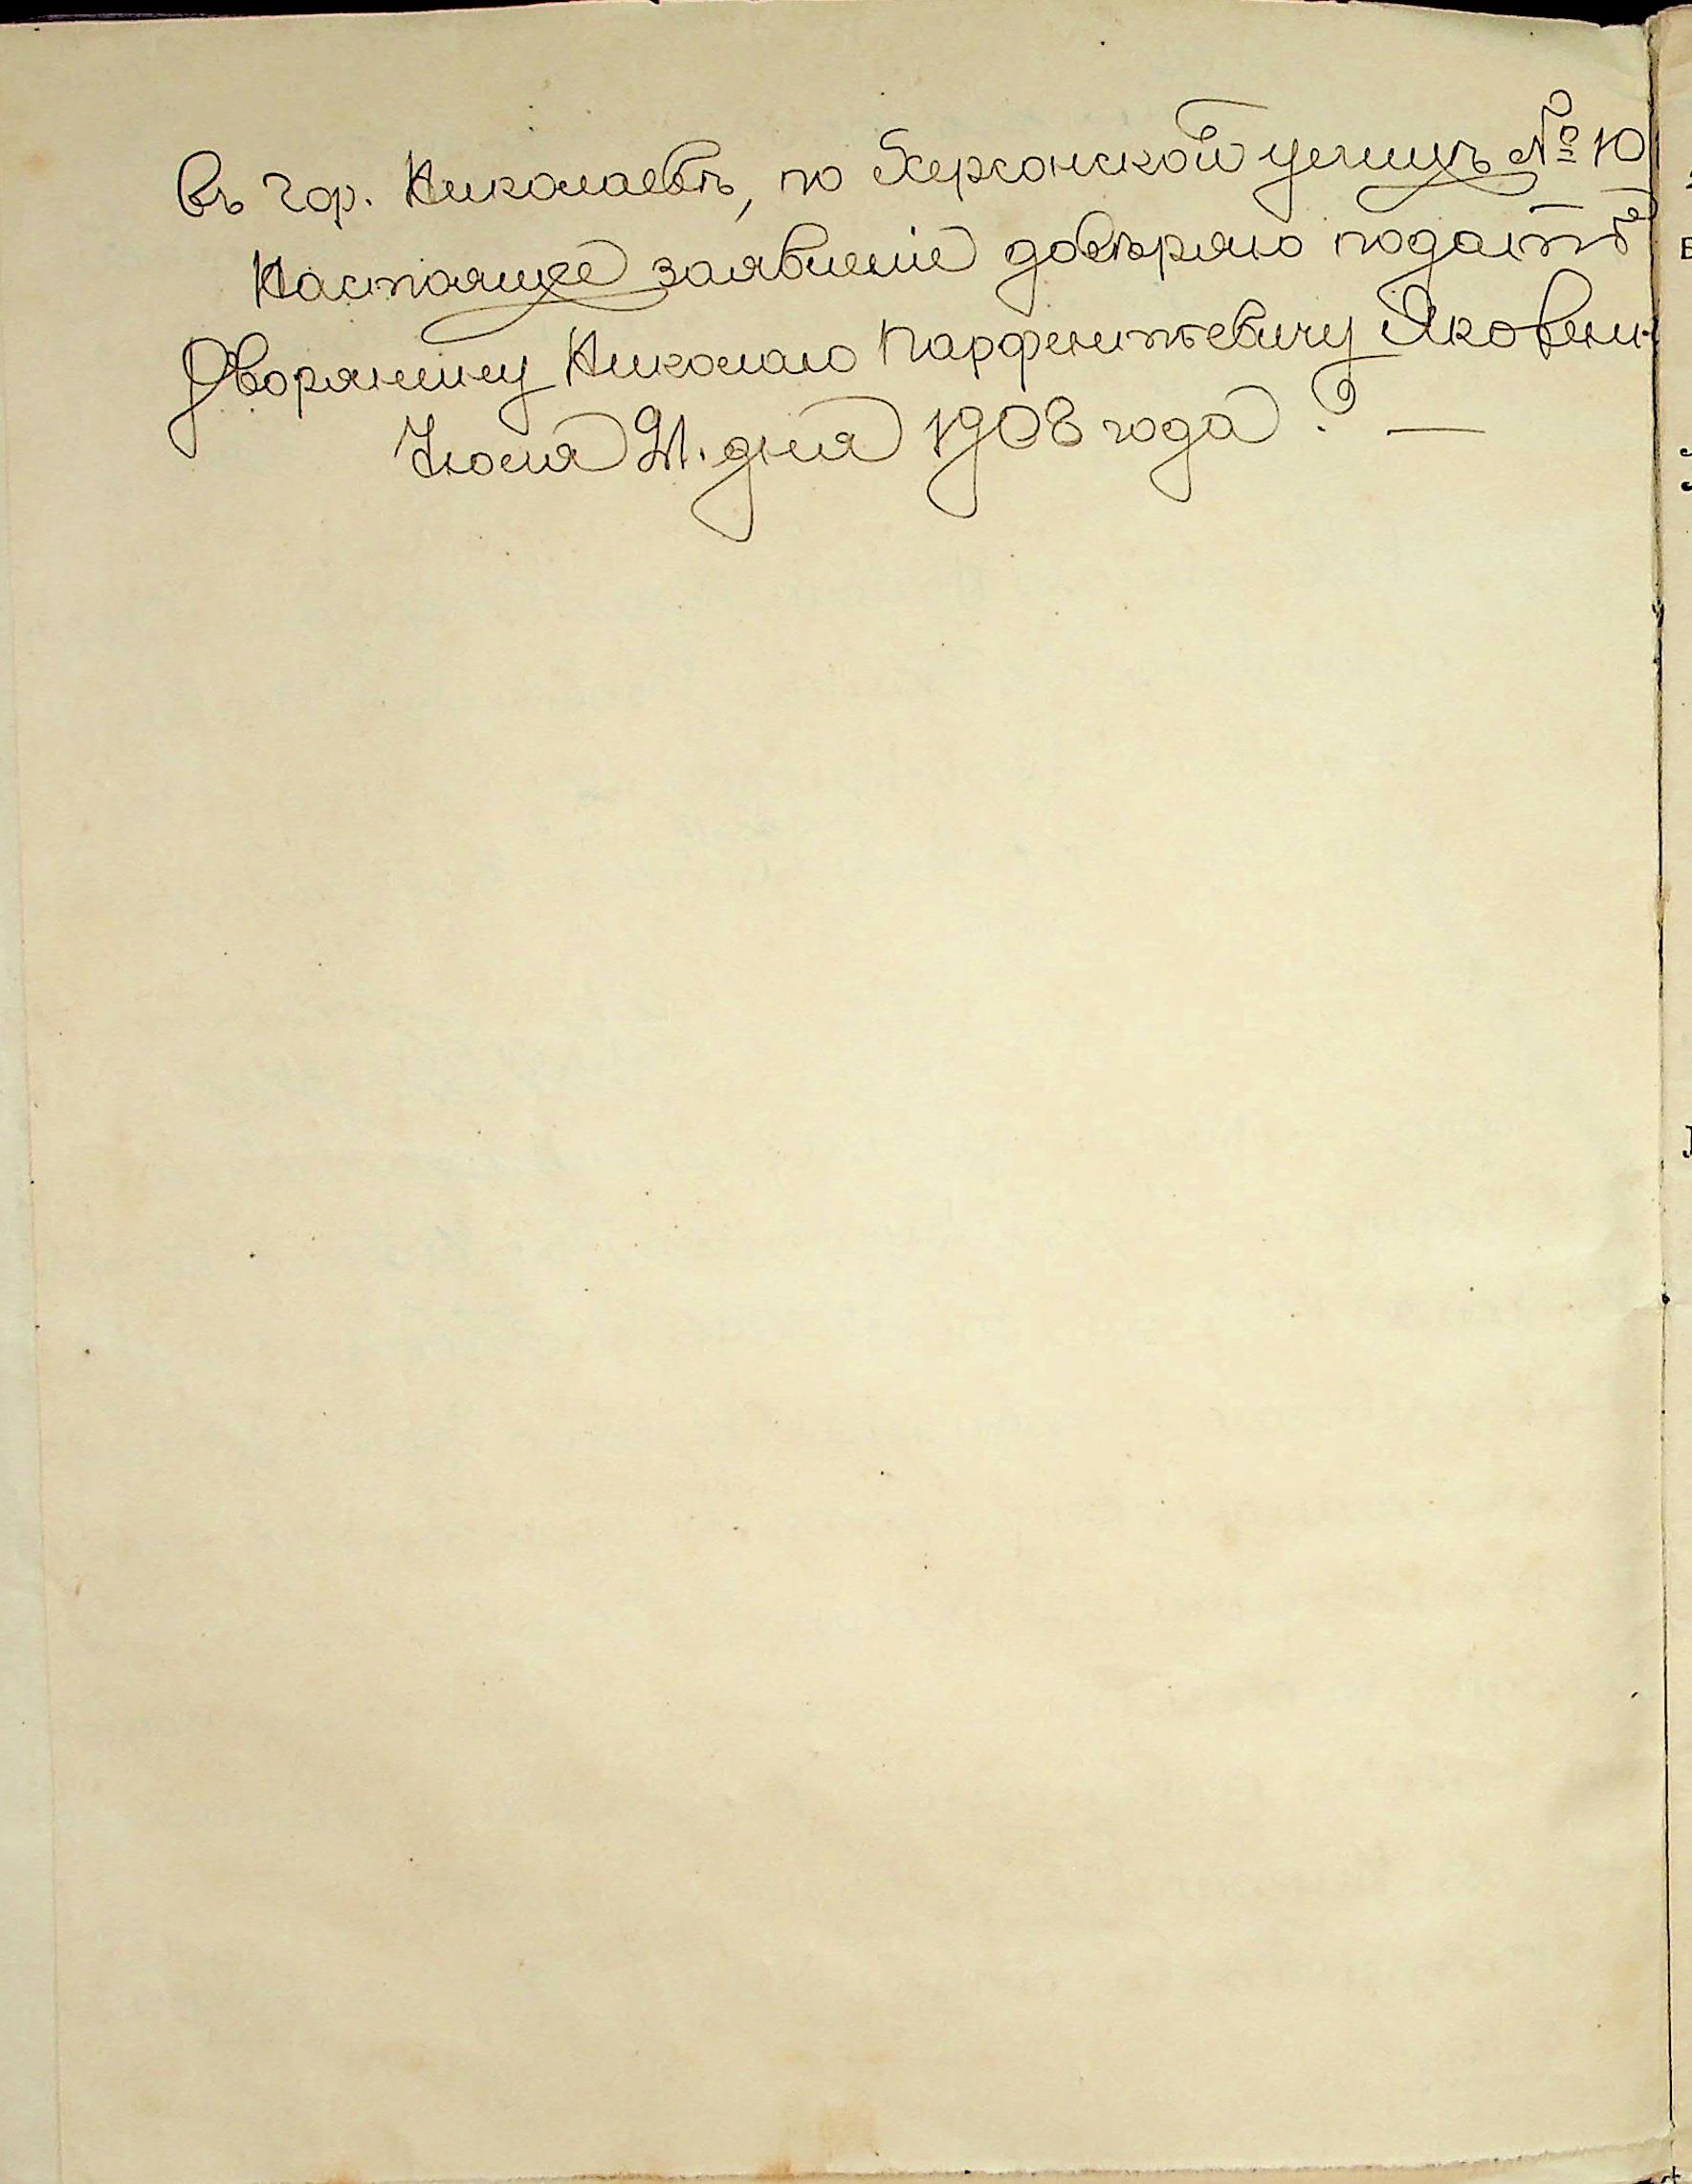 въ гор. Николаевѣ, по Херсонской улицѣ № 10
Настоящее заявленіе довѣряю подать
Дворянину Николаю Парфентьевичу Яковен
Іюля 21. дня 1908 года